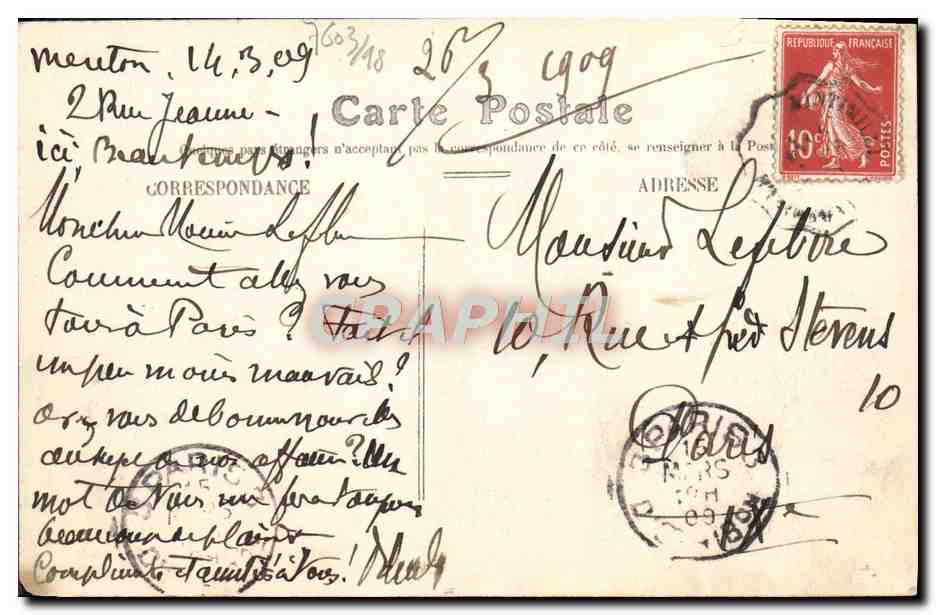 Menton, 14,3,09
2 Rue Jeanne -
ici Beau temps!
7603/18
26/3 1909
Carte Postale
Quelques pays étrangers n'acceptant pas la correspondance de ce côté, se renseigner à la Poste
CORRESPONDANCE
ADRESSE
REPUBLIQUE FRANÇAISE
10c
POSTES
Mon cher
Comment allez vous
tous à Paris? Fait il
un peu moins mauvais?
avez vous de bonnes nouvelles
au sujet de nos affaires? Un
mot de vous me fera toujours
beaucoup de plaisir
Compliments et amitiés à tous!
Monsieur Lefebvre
10, Rue Alfred Stevens
10
Paris
PARIS
MARS
09
PARIS
DISTRIBUTION
CPAPHIL